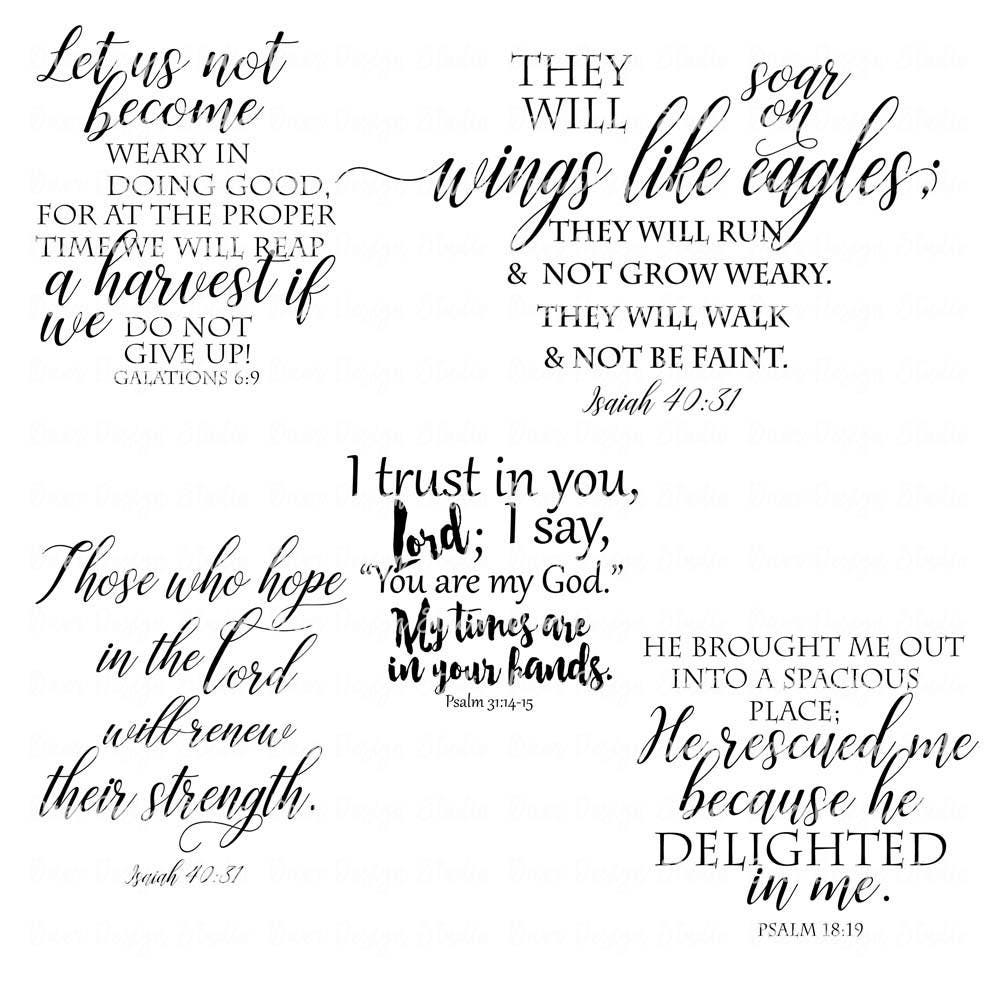 Let us not
become
WEARY IN
DOING GOOD,
FOR AT THE PROPER
TIME WE WILL REAP
a harvest if
we DO NOT
GIVE UP!
GALATIONS 6:9
THEY
WILL
soar
on
wings like eagles;
THEY WILL RUN
& NOT GROW WEARY.
THEY WILL WALK
& NOT BE FAINT.
Isaiah 40:31
I trust in you,
Lord; I say,
“You are my God.”
My times are
in your hands.
Psalm 31:14-15
Those who hope
in the Lord
will renew
their strength.
Isaiah 40:31
HE BROUGHT ME OUT
INTO A SPACIOUS
PLACE;
He rescued me
because he
DELIGHTED
in me.
PSALM 18:19